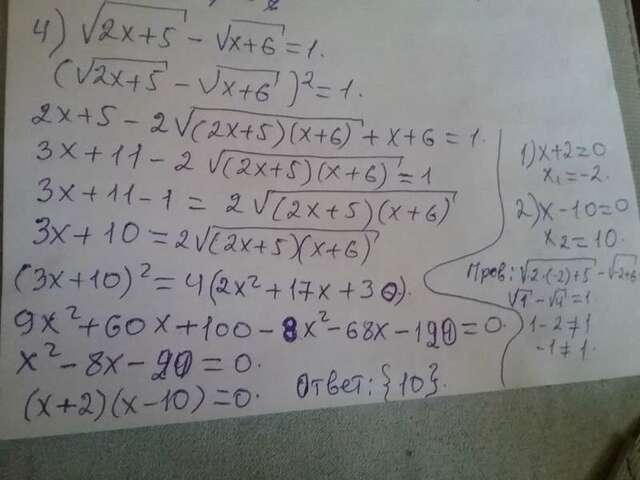 4) √2x+5 - √x+6 = 1.
(√2x+5 - √x+6)² = 1.
2x+5 - 2√(2x+5)(x+6) + x+6 = 1.
3x+11 - 2√(2x+5)(x+6) = 1
3x+11-1 = 2√(2x+5)(x+6)
3x+10 = 2√(2x+5)(x+6)
(3x+10)² = 4(2x²+17x+30).
9x²+60x+100-8x²-68x-120=0.
x²-8x-20=0.
(x+2)(x-10)=0.
Ответ: {10}.
1) x+2=0
x₁=-2.
2) x-10=0
x₂=10.
Пров: √2·(-2)+5 - √-2+6
√1 - √4 = 1
1-2≠1
-1≠1.